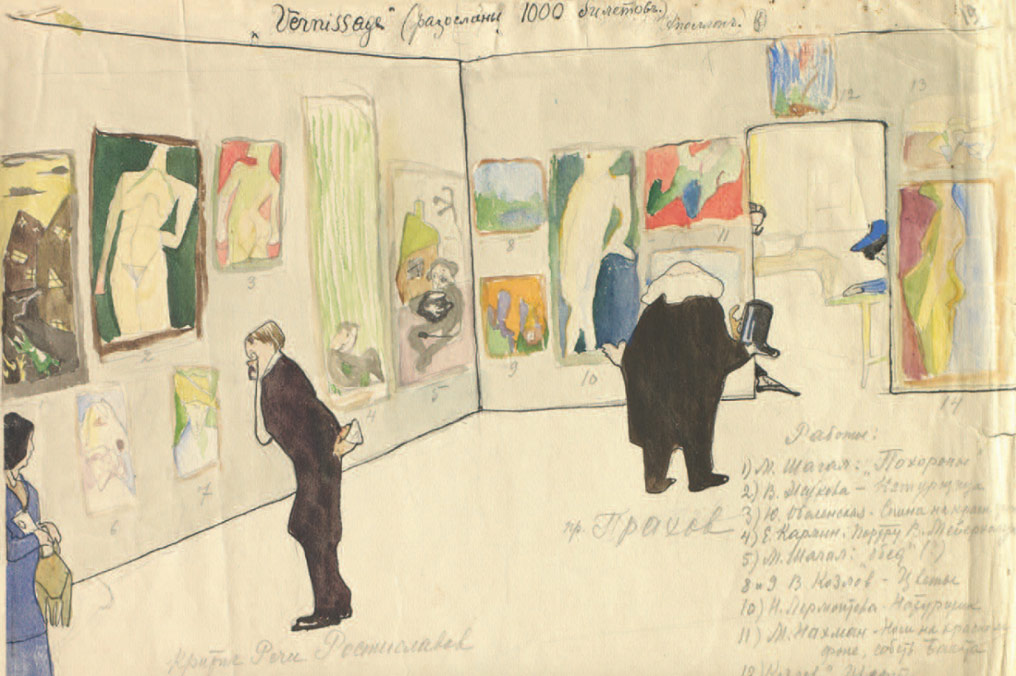 "Vernissage" (разосланы 1000 билетовъ)
12
13
1
2
3
4
5
6
7
8
9
10
11
14
пр. Прахов
Критик Речи Ростиславов
Работы:
1) М. Шагал: "Похороны"
2) В. Жукова - Натурщица
3) Ю. Оболенская - Спина на красном
4) Е. Каплин: Портрет В. Мейерхольда
5) М. Шагал: "обед" (?)
8 и 9 В. Козлов - Цветы
10) Н. Лермонтова - Натурщик
11) М. Нахман - Ноги на красном
фоне, собств. Бакста
12) Козлов